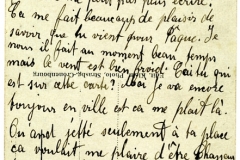 plus écrire.
Ça me fait beaucoup de plaisir de
savoir que tu vient pour Paque. Je
nous il fait au moment beau temps
mais le vent est très froid. Es tu qui
est sur cette carte? Moi je va encore
bonjour en ville est ca me plait là.
On avait jetté seulement à ta place
ca voulait me plaire d'être